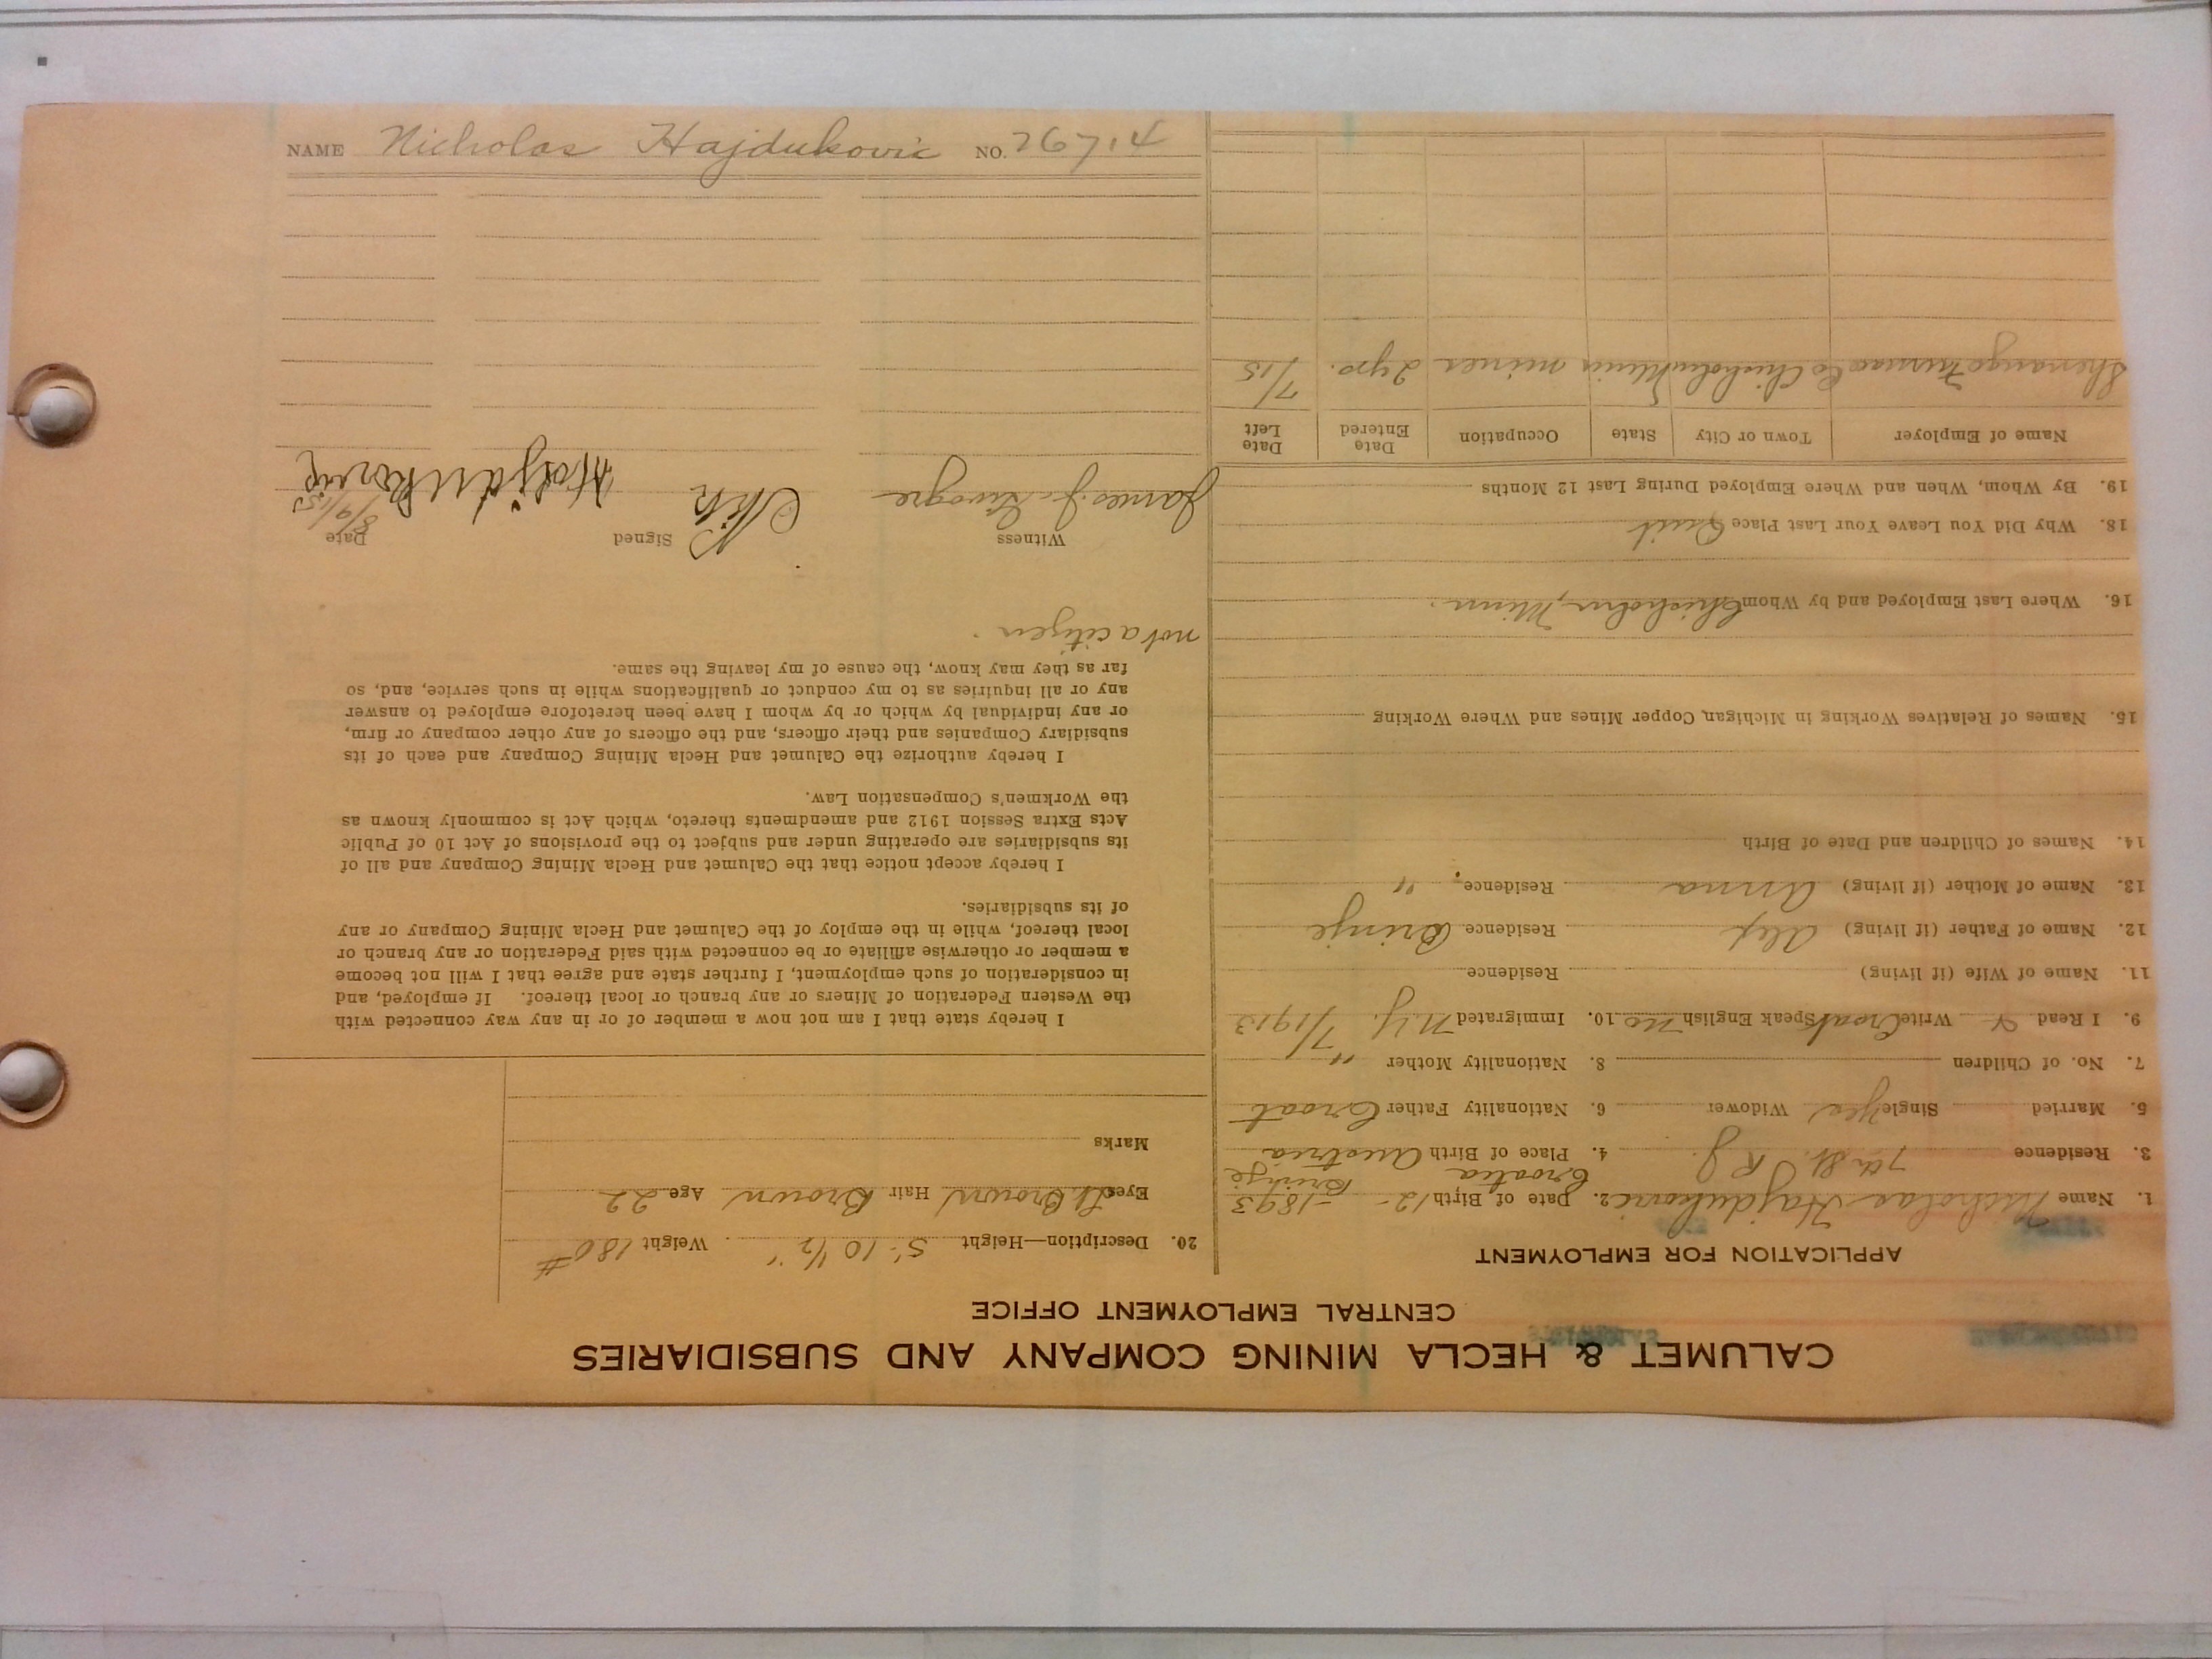 CALUMET & HECLA MINING COMPANY AND SUBSIDIARIES
CENTRAL EMPLOYMENT OFFICE
APPLICATION FOR EMPLOYMENT
1. Name Nicholas Hajdukovic 2. Date of Birth 12 - - 1893
Croatia Brinje
3. Residence 7th St. R J. 4. Place of Birth Austria
5. Married Single Yes Widower 6. Nationality Father Croat
7. No. of Children 8. Nationality Mother "
9. I Read & Write Croat Speak English no 10. Immigrated N.Y. 7/1913
11. Name of Wife (if living) Residence
12. Name of Father (if living) Alex Residence Brinje
13. Name of Mother (if living) Anna Residence "
14. Names of Children and Date of Birth
15. Names of Relatives Working in Michigan Copper Mines and Where Working
16. Where Last Employed and by Whom Chisholm, Minn.
18. Why Did You Leave Your Last Place Quit
19. By Whom, When and Where Employed During Last 12 Months
Name of Employer Town or City State Occupation Date Entered Date Left
Shenango Furnace Co Chisholm Minn miner 2 yrs. 7/15
20. Description—Height 5' 10 1/2" Weight 180#
Eyes Lt. Brown Hair Brown Age 22
Marks
I hereby state that I am not now a member of or in any way connected with
the Western Federation of Miners or any branch or local thereof. If employed, and
in consideration of such employment, I further state and agree that I will not become
a member or otherwise affiliate or be connected with said Federation or any branch or
local thereof, while in the employ of the Calumet and Hecla Mining Company or any
of its subsidiaries.
I hereby accept notice that the Calumet and Hecla Mining Company and all of
its subsidiaries are operating under and subject to the provisions of Act 10 of Public
Acts Extra Session 1912 and amendments thereto, which Act is commonly known as
the Workmen's Compensation Law.
I hereby authorize the Calumet and Hecla Mining Company and each of its
subsidiary Companies and their officers, and the officers of any other company or firm,
or any individual by which or by whom I have been heretofore employed to answer
any or all inquiries as to my conduct or qualifications while in such service, and, so
far as they may know, the cause of my leaving the same.
not a citizen.
Witness Signed Date
James J. Nik Hajdukovic 8/9/15
NAME Nicholas Hajdukovic NO. 26714